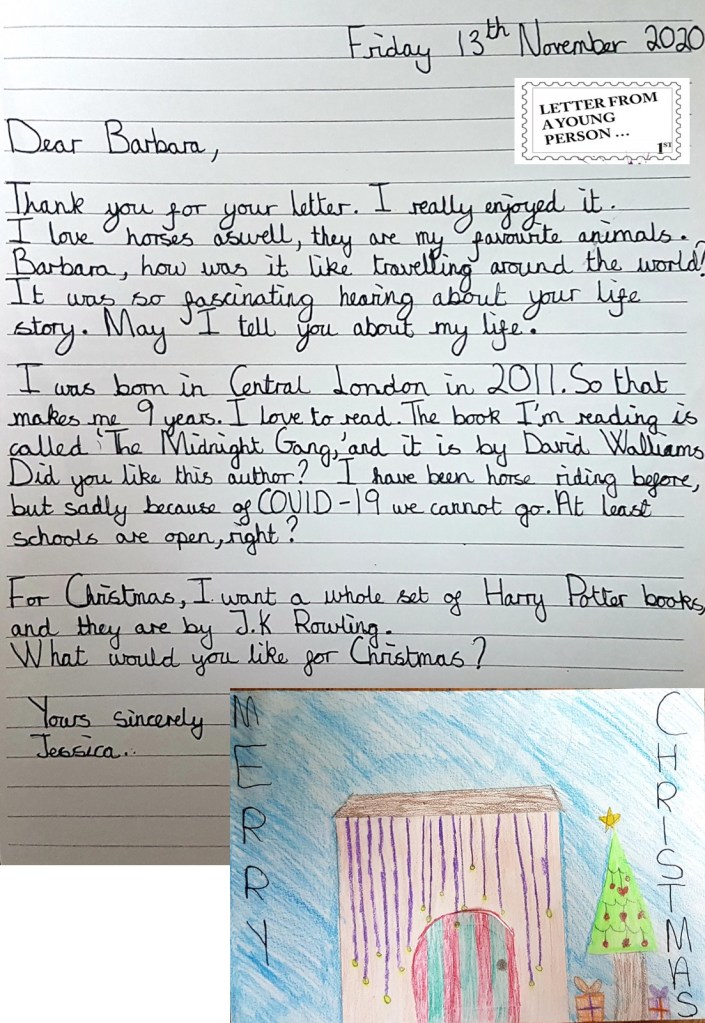 Friday 13th November 2020
LETTER FROM
A YOUNG
PERSON ...
1ST
Dear Barbara,
Thank you for your letter. I really enjoyed it.
I love horses aswell, they are my favourite animals.
Barbara, how was it like travelling around the world?
It was so fascinating hearing about your life
story. May I tell you about my life.
I was born in Central London in 2011. So that
makes me 9 years. I love to read. The book I'm reading is
called 'The Midnight Gang,' and it is by David Walliams
Did you like this author? I have been horse riding before,
but sadly because of COVID-19 we cannot go. At least
schools are open, right?
For Christmas, I want a whole set of Harry Potter books,
and they are by J.K Rowling.
What would you like for Christmas?
Yours sincerely
Jessica..
MERRY
CHRISTMAS